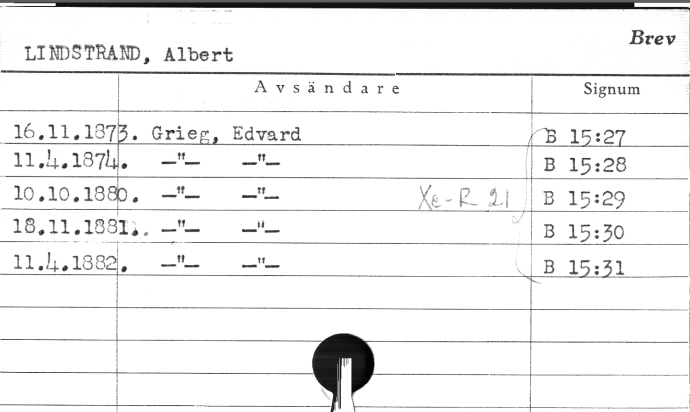 Brev
LINDSTRAND, Albert
Avsändare Signum
16.11.1873. Grieg, Edvard B 15:27
11.4.1874. —"— —"— B 15:28
10.10.1880. —"— —"— Xe-R 21 B 15:29
18.11.1881. —"— —"— B 15:30
11.4.1882. —"— —"— B 15:31